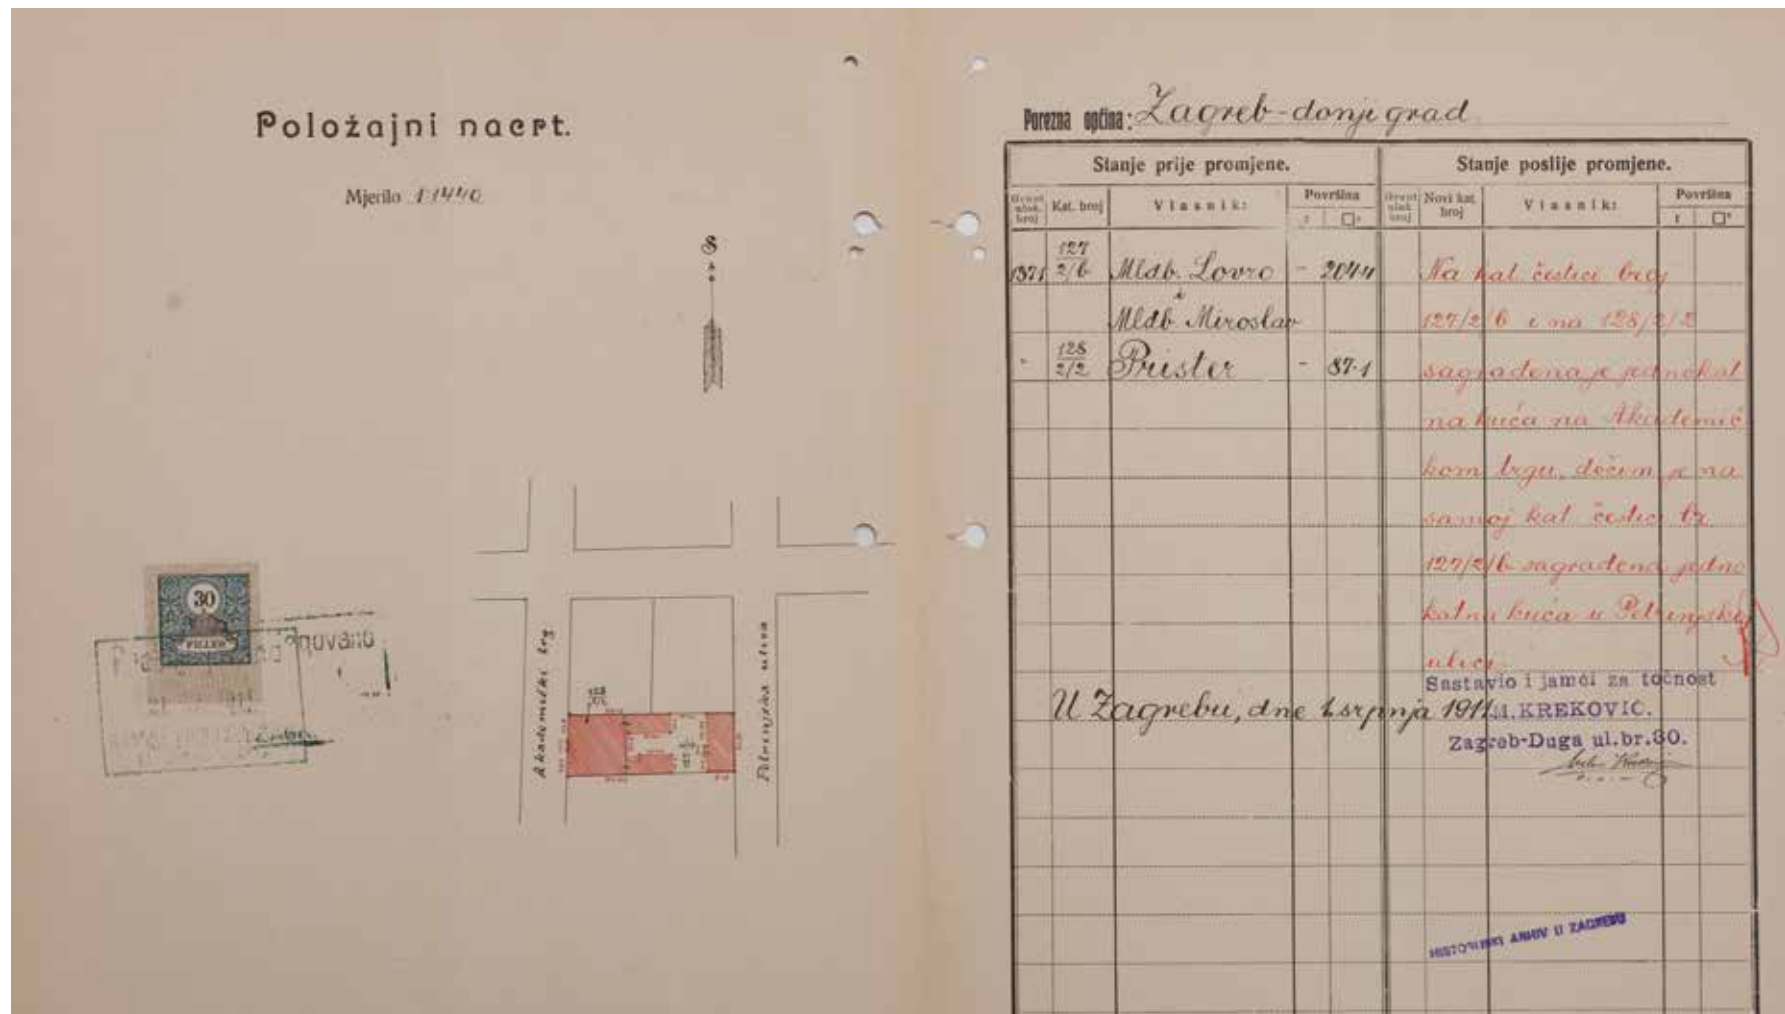 Položajni nacrt.
Mjerilo 1:1440
S
30
FILLÉR
Akademički trg
Petrinjska ulica
Porezna općina: Zagreb-donji grad
Stanje prije promjene.
Stanje poslije promjene.
Grunt. ulož. broj
Kat. broj
Vlasnik:
Površina
Grunt. ulož. broj
Novi kat. broj
Vlasnik:
Površina
1371 127 2/b Mldb. Lovro - 204·4
i
Mldb Miroslav
" 128 2/2 Prister - 87·1
Na kat. čestici broj
127/2/b i na 128/2/2
sagrađena je jednokat
na kuća na Akademič
kom trgu, dočim je na
samoj kat. čestici br.
127/2/b sagrađena jedno
katna kuća u Petrinjskoj
ulici.
U Zagrebu, dne 1 srpnja 1911
Sastavio i jamči za točnost
M. KREKOVIC.
Zagreb-Duga ul.br.30.
HISTORIJSKI ARHIV U ZAGREBU